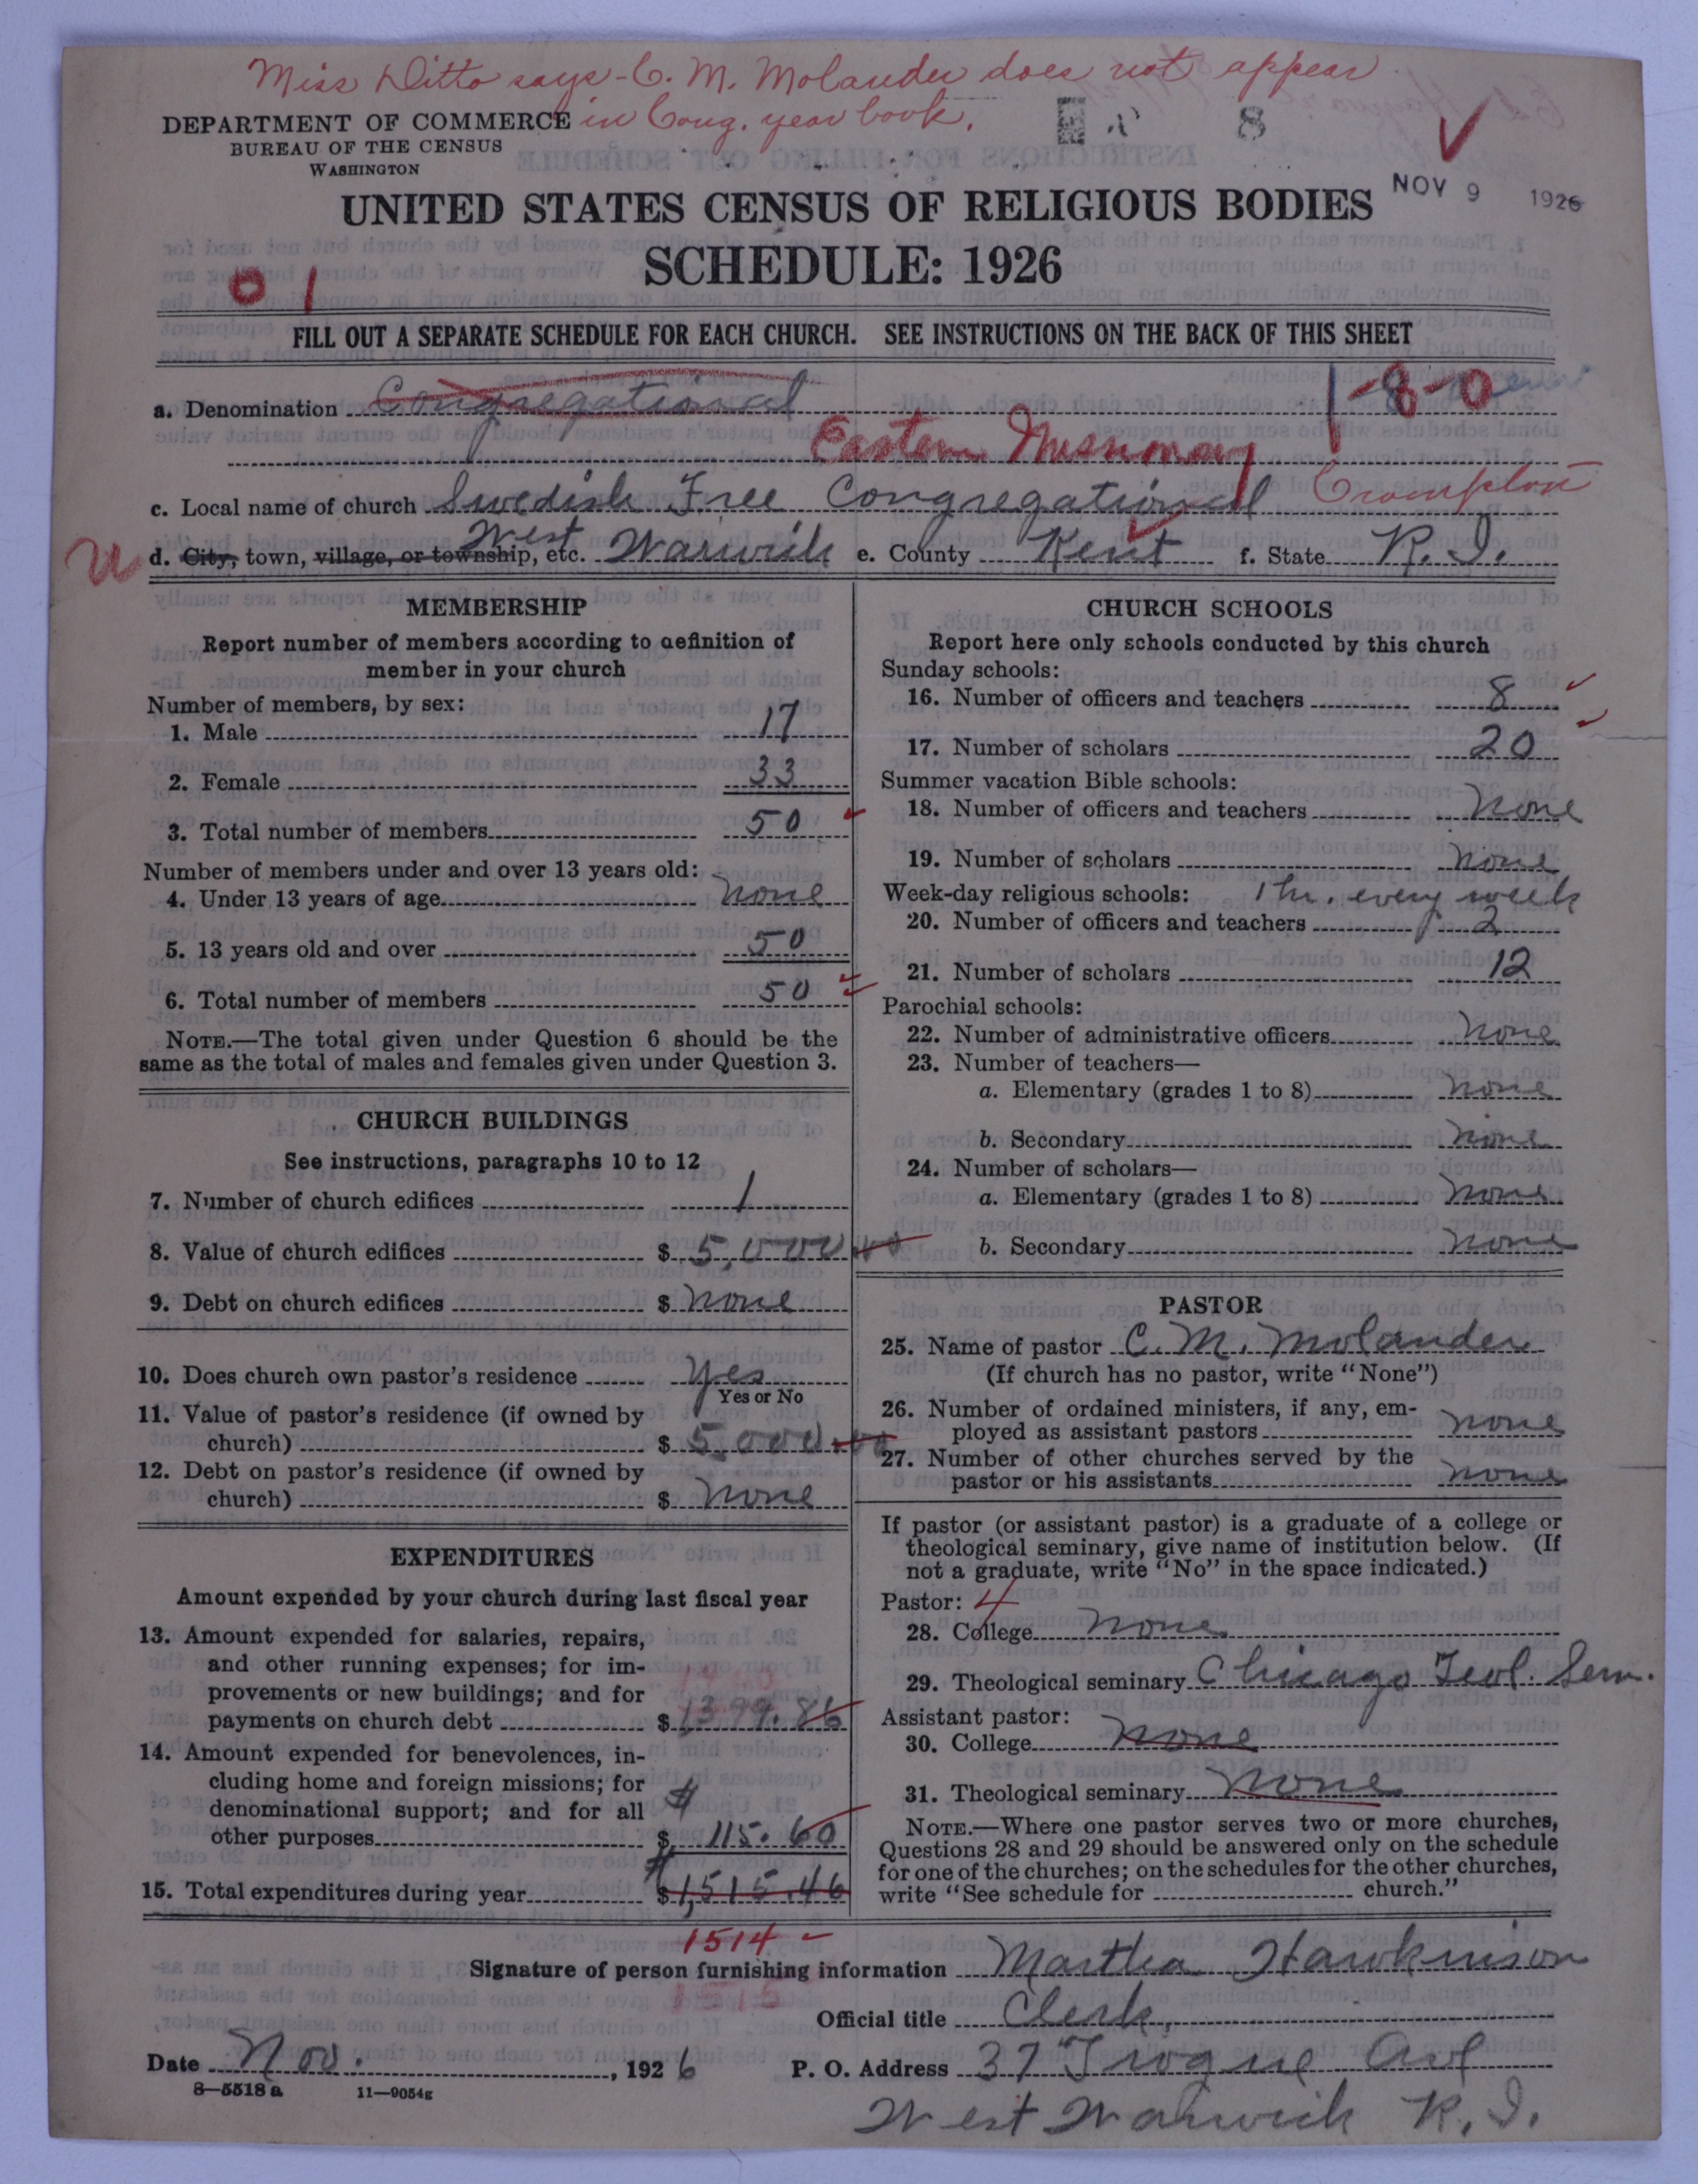 Miss Ditto says - C. M. Molander does not appear
in Cong. year book.
DEPARTMENT OF COMMERCE
BUREAU OF THE CENSUS
WASHINGTON
8
NOV 9 1926
UNITED STATES CENSUS OF RELIGIOUS BODIES
SCHEDULE: 1926
0 1
FILL OUT A SEPARATE SCHEDULE FOR EACH CHURCH. SEE INSTRUCTIONS ON THE BACK OF THIS SHEET
1-8-0
a. Denomination Congregational
Eastern Missionary
c. Local name of church Swedish Free Congregational Crompton
d. City, town, village, or township, etc. West Warwick e. County Kent f. State R. I.
MEMBERSHIP
Report number of members according to definition of
member in your church
Number of members, by sex:
1. Male 17
2. Female 33
3. Total number of members 50
Number of members under and over 13 years old:
4. Under 13 years of age none
5. 13 years old and over 50
6. Total number of members 50
NOTE.—The total given under Question 6 should be the
same as the total of males and females given under Question 3.
CHURCH BUILDINGS
See instructions, paragraphs 10 to 12
7. Number of church edifices 1
8. Value of church edifices $ 5,000.00
9. Debt on church edifices $ none
10. Does church own pastor's residence yes
Yes or No
11. Value of pastor's residence (if owned by
church) $ 5,000.00
12. Debt on pastor's residence (if owned by
church) $ none
EXPENDITURES
Amount expended by your church during last fiscal year
13. Amount expended for salaries, repairs,
and other running expenses; for im-
provements or new buildings; and for
payments on church debt $ 1399.86
14. Amount expended for benevolences, in-
cluding home and foreign missions; for
denominational support; and for all $
other purposes $ 115.60
15. Total expenditures during year $ 1,515.46
1514
1515
CHURCH SCHOOLS
Report here only schools conducted by this church
Sunday schools:
16. Number of officers and teachers 8
17. Number of scholars 20
Summer vacation Bible schools:
18. Number of officers and teachers none
19. Number of scholars none
Week-day religious schools: 1 hr. every week
20. Number of officers and teachers 2
21. Number of scholars 12
Parochial schools:
22. Number of administrative officers none
23. Number of teachers—
a. Elementary (grades 1 to 8) none
b. Secondary none
24. Number of scholars—
a. Elementary (grades 1 to 8) none
b. Secondary none
PASTOR
25. Name of pastor C. M. Molander
(If church has no pastor, write "None")
26. Number of ordained ministers, if any, em-
ployed as assistant pastors none
27. Number of other churches served by the
pastor or his assistants none
If pastor (or assistant pastor) is a graduate of a college or
theological seminary, give name of institution below. (If
not a graduate, write "No" in the space indicated.)
Pastor: 4
28. College none
29. Theological seminary Chicago Teol. Sem.
Assistant pastor:
30. College none
31. Theological seminary none
NOTE.—Where one pastor serves two or more churches,
Questions 28 and 29 should be answered only on the schedule
for one of the churches; on the schedules for the other churches,
write "See schedule for church."
Signature of person furnishing information Martha Hawkinson
Official title Clerk,
Date Nov. , 1926 P. O. Address 37 Trogue Ave
West Warwick R. I.
8—5518 a 11—9054g